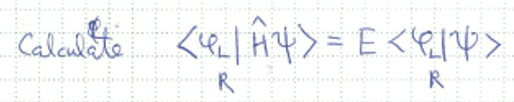 Calculate ⟨φ_L| Ĥψ⟩ = E ⟨φ_L|ψ⟩
R R